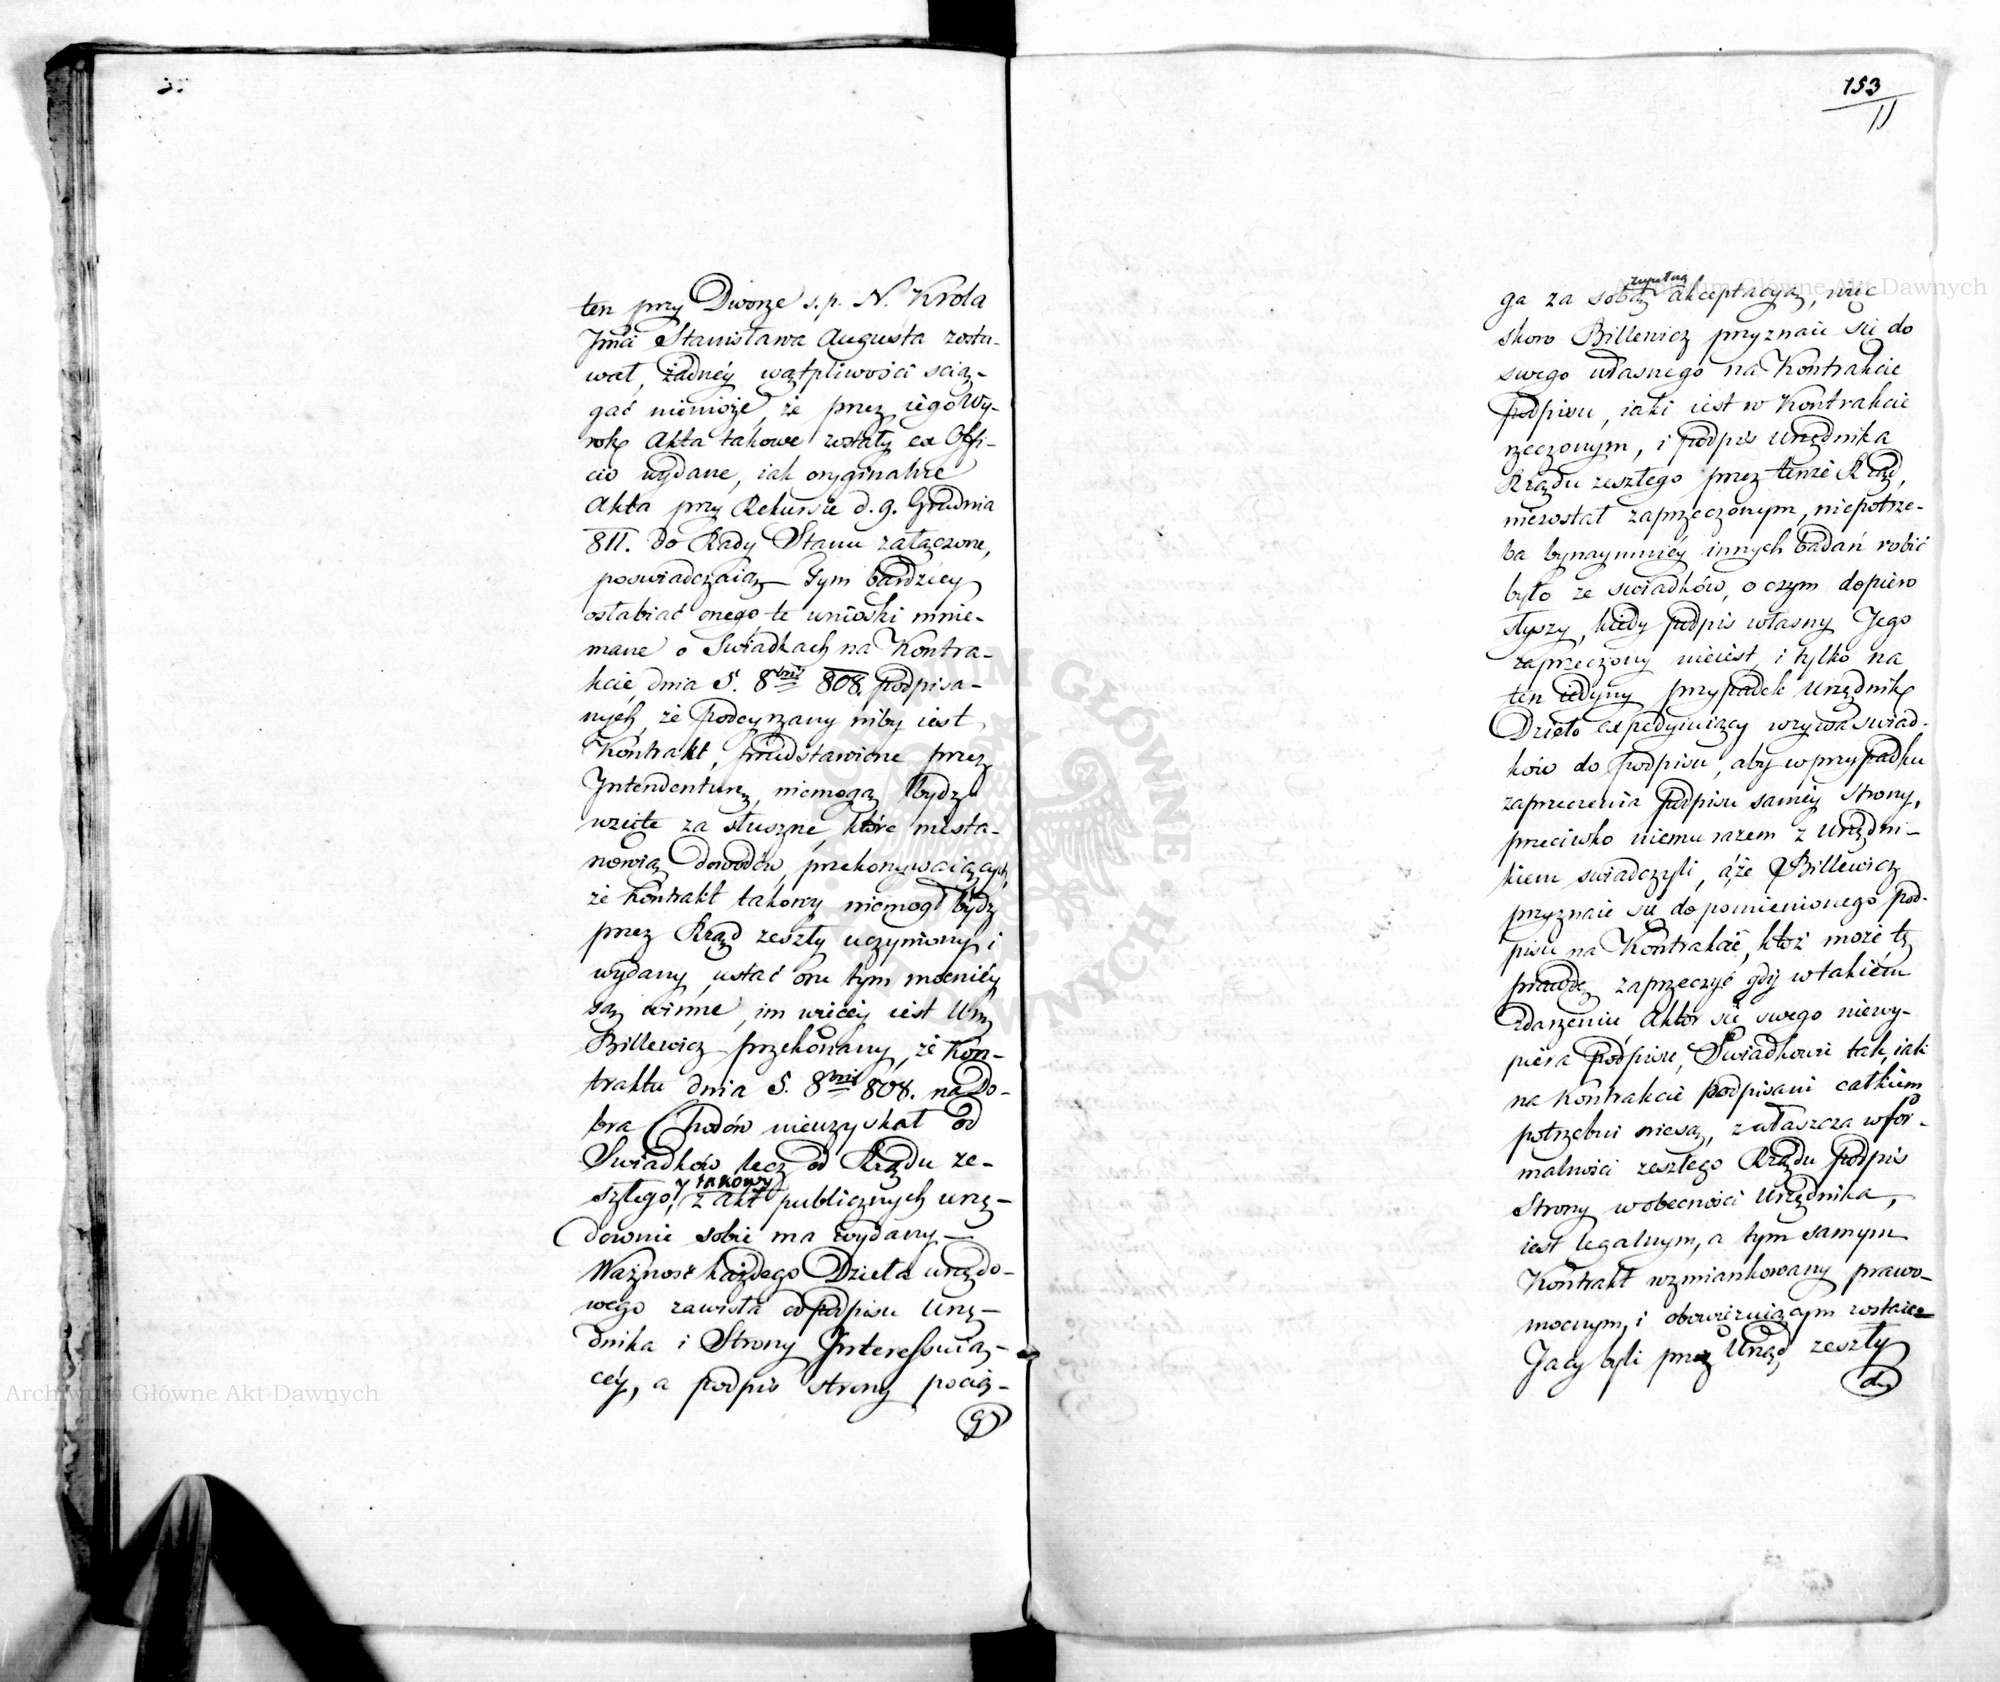 ten przy Dworze s. p. N. Krola
Jmći Stanisława Augusta zosta-
wał, żadnéy wątpliwości ścią-
gać niemoże, że przez iego Wy-
rok Akta takowe zostały ex Offi-
cio wydane, iak oryginalne
Akta przy Rekursie d. 9. Grudnia
811. do Rady Stanu załączone,
poswiadczaią — Tym bardziey
osłabiać onego te wnioski mnie-
mane o Swiadkach na Kontra-
kcie dnia 5. 8bris 808. podpisa-
nych, że podeyrzany niby iest
Kontrakt, przedstawione przez
Intendenturę, niemogą bydź
wzięte za słuszne, które niesta-
nowią dowodów, przekonywaiących,
że Kontrakt takowy niemogł bydź
przez Rząd zeszły uczyniony i
wydany, ustać one tym mocniéy
są winne, im więcéy iest Ur.
Billewicz przekonany, że Kon-
traktu dnia 5. 8bris 808. na Do-
bra Chodów nieuzyskał od
Swiadków lecz od Rządu ze-
szłego, y takowy z Akt publicznych urzę-
downie sobie ma wydany —
Ważność każdego Dzieła urzędo-
wego zawisła od podpisu Urzę-
dnika i Strony Interessuią-
céy, a podpis strony pocią-
ga
153
11
ga za sobą zupełną akceptacyą, więc
skoro Billewicz przyznaie się do
swego własnego na Kontrakcie
podpisu, iaki iest w Kontrakcie
rzeczonym, i podpis Urzędnika
Rządu zeszłego przez tenże Rząd,
niezostał zaprzeczonym, niepotrze-
ba bynaymniéy innych badań robić
było ze swiadków, o czym dopiero
słyszy, kiedy podpis własny Jego
zaprzeczony nieiest, i tylko na
ten iedyny przypadek Urzędnik
Dzieło expedyuiący wzywa swiad-
ków do podpisu, aby w przypadku
zaprzeczenia podpisu saméy strony,
przeciwko niemu razem z Urzędni-
kiem swiadczyli, a że Billewicz
przyznaie się do pomienionego pod-
pisu na Kontrakcie, któż może tę
prawdę zaprzeczyć gdy w takiém
zdarzeniu Aktor się swego niewy-
piera podpisu, Swiadkowie tak, iak
na Kontrakcie podpisani całkiem
potrzebni niesą, zwłaszcza w for-
malności zeszłego Rządu podpis
Strony w obecności Urzędnika,
iest legalnym, a tym samym
Kontrakt wzmiankowany prawo-
mocnym, i obowiązuiącym zostaie —
Jacy byli przez Urząd zeszły